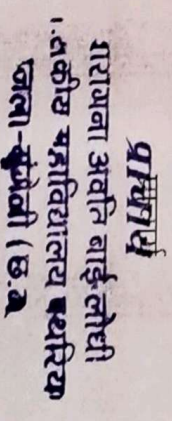 प्राचार्य
रायमना अवंति बाई लोधी
शासकीय महाविद्यालय पथरिया
जिला-मुंगेली (छ.ग